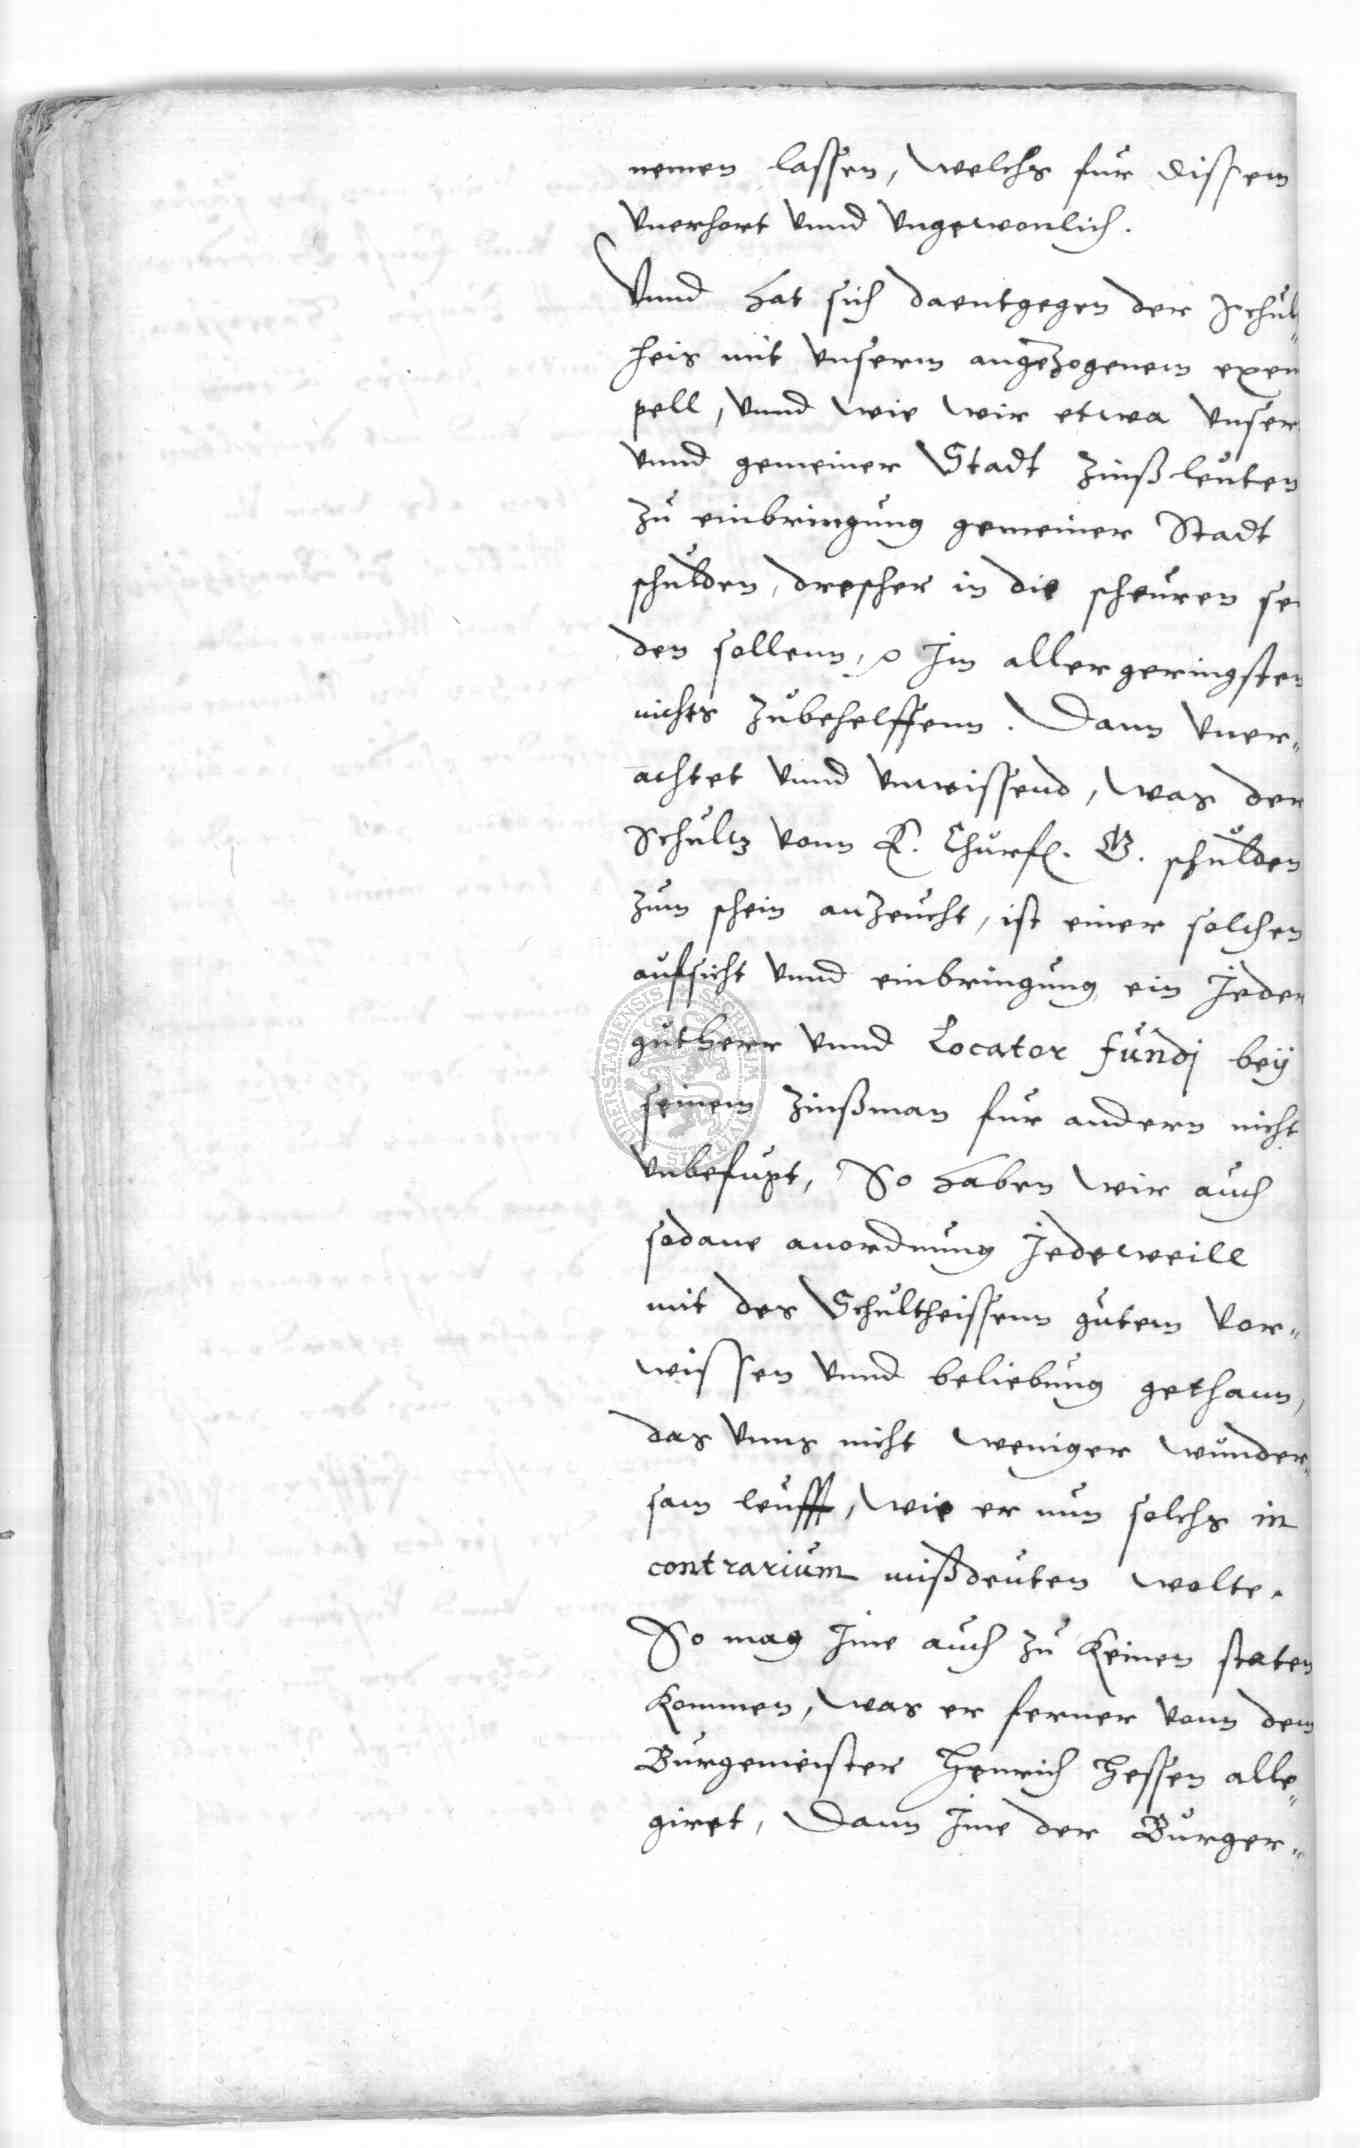 nemen lassen, welchs fur dissem
vnerhort vnnd vngewonlich.
Vnnd hat sich daentgegen der Schul„
heis mit vnserm angezogenem exem
pell, vnnd wie wir etwa vnser
vnnd gemeiner Stadt zinßleuten
zu einbringung gemeiner Stadt
schulden, drescher in die scheuren sen
den sollenn, Im allergeringsten
nichts zubehelffenn. Dann vner„
achtet vnnd vnwissend, was der
Schultz vonn E. Churfl. G. schulden
zum schein anzeucht, ist einer solchen
aufsicht vnnd einbringung ein Jeder
gutherr vnnd Locator fundj beÿ
seinem zinßman fur andern nicht
vnbefugt, So haben wir auch
sodane anordnung Jedeweill
mit des Schultheissenn gutem vor„
wissen vnnd beliebung gethann,
das vnns nicht weniger wunder„
sam leufft, wie er nun solchs in
contrarium mißdeuten wolte.
So mag Jme auch zu keinen staten
kommen, was er ferner vonn dem
Burgemeister Henrich Hessen alle„
giret, Dann Jme der Burger„
SECRETUM
DUDERSTADIENSIS